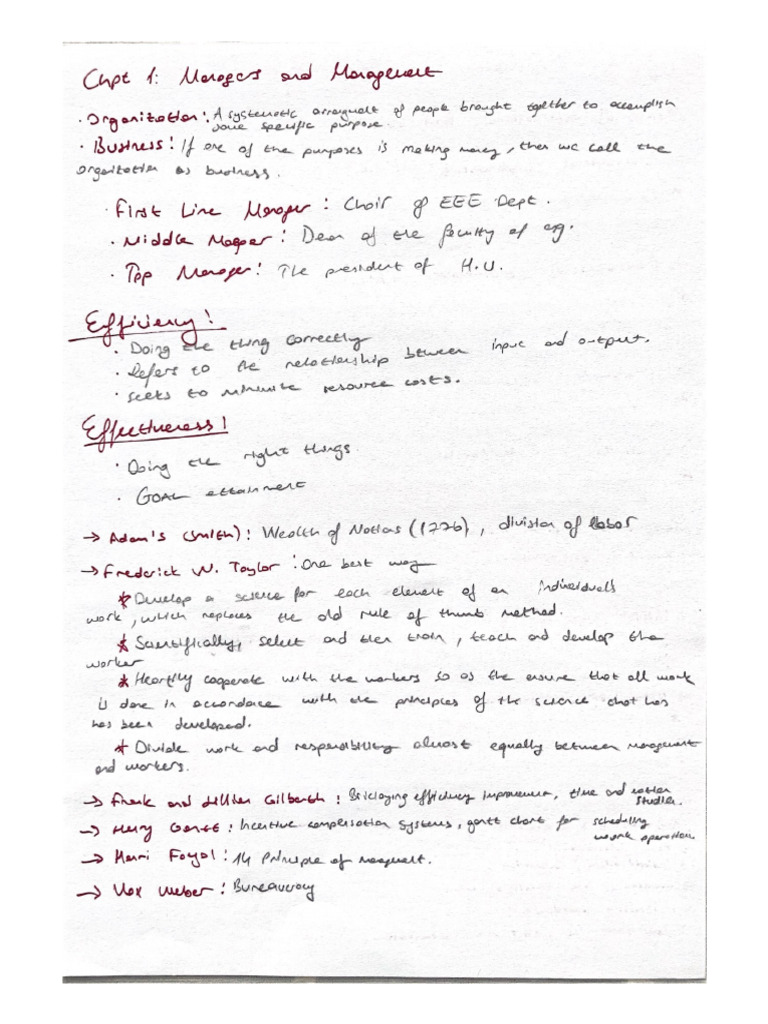 Chpt 1: Managers and Management
· Organization: A systematic arrangment of people brought together to accomplish
some specific purpose.
· Business: If one of the purposes is making money, then we call the
organization as business.
· First Line Manager: Chair of EEE Dept.
· Middle Manager: Dean of the faculty of eng.
· Top Manager: The president of H.U.
Efficiency:
· Doing the thing correctly
· Refers to the relationship between input and output.
· seeks to minimize resource costs.
Effectiveness:
· Doing the right things.
· GOAL attainment
→ Adam's (Smith): Wealth of Nations (1776), division of labor
→ Frederick W. Taylor: One best way
* Develop a science for each element of an individual's
work, which replaces the old rule of thumb method.
* Scientifically, select and then train, teach and develop the
worker
* Heartily cooperate with the workers so as the ensure that all work
is done in accordance with the principles of the science that has
has been developed.
* Divide work and responsibility almost equally between management
and workers.
→ Frank and Lillian Gilbreth: Bricklaying efficiency improvement, time and motion
studies.
→ Henry Gantt: Incentive compensation systems, gantt chart for scheduling
work operation.
→ Henri Fayol: 14 Principle of management.
→ Max Weber: Bureaucracy